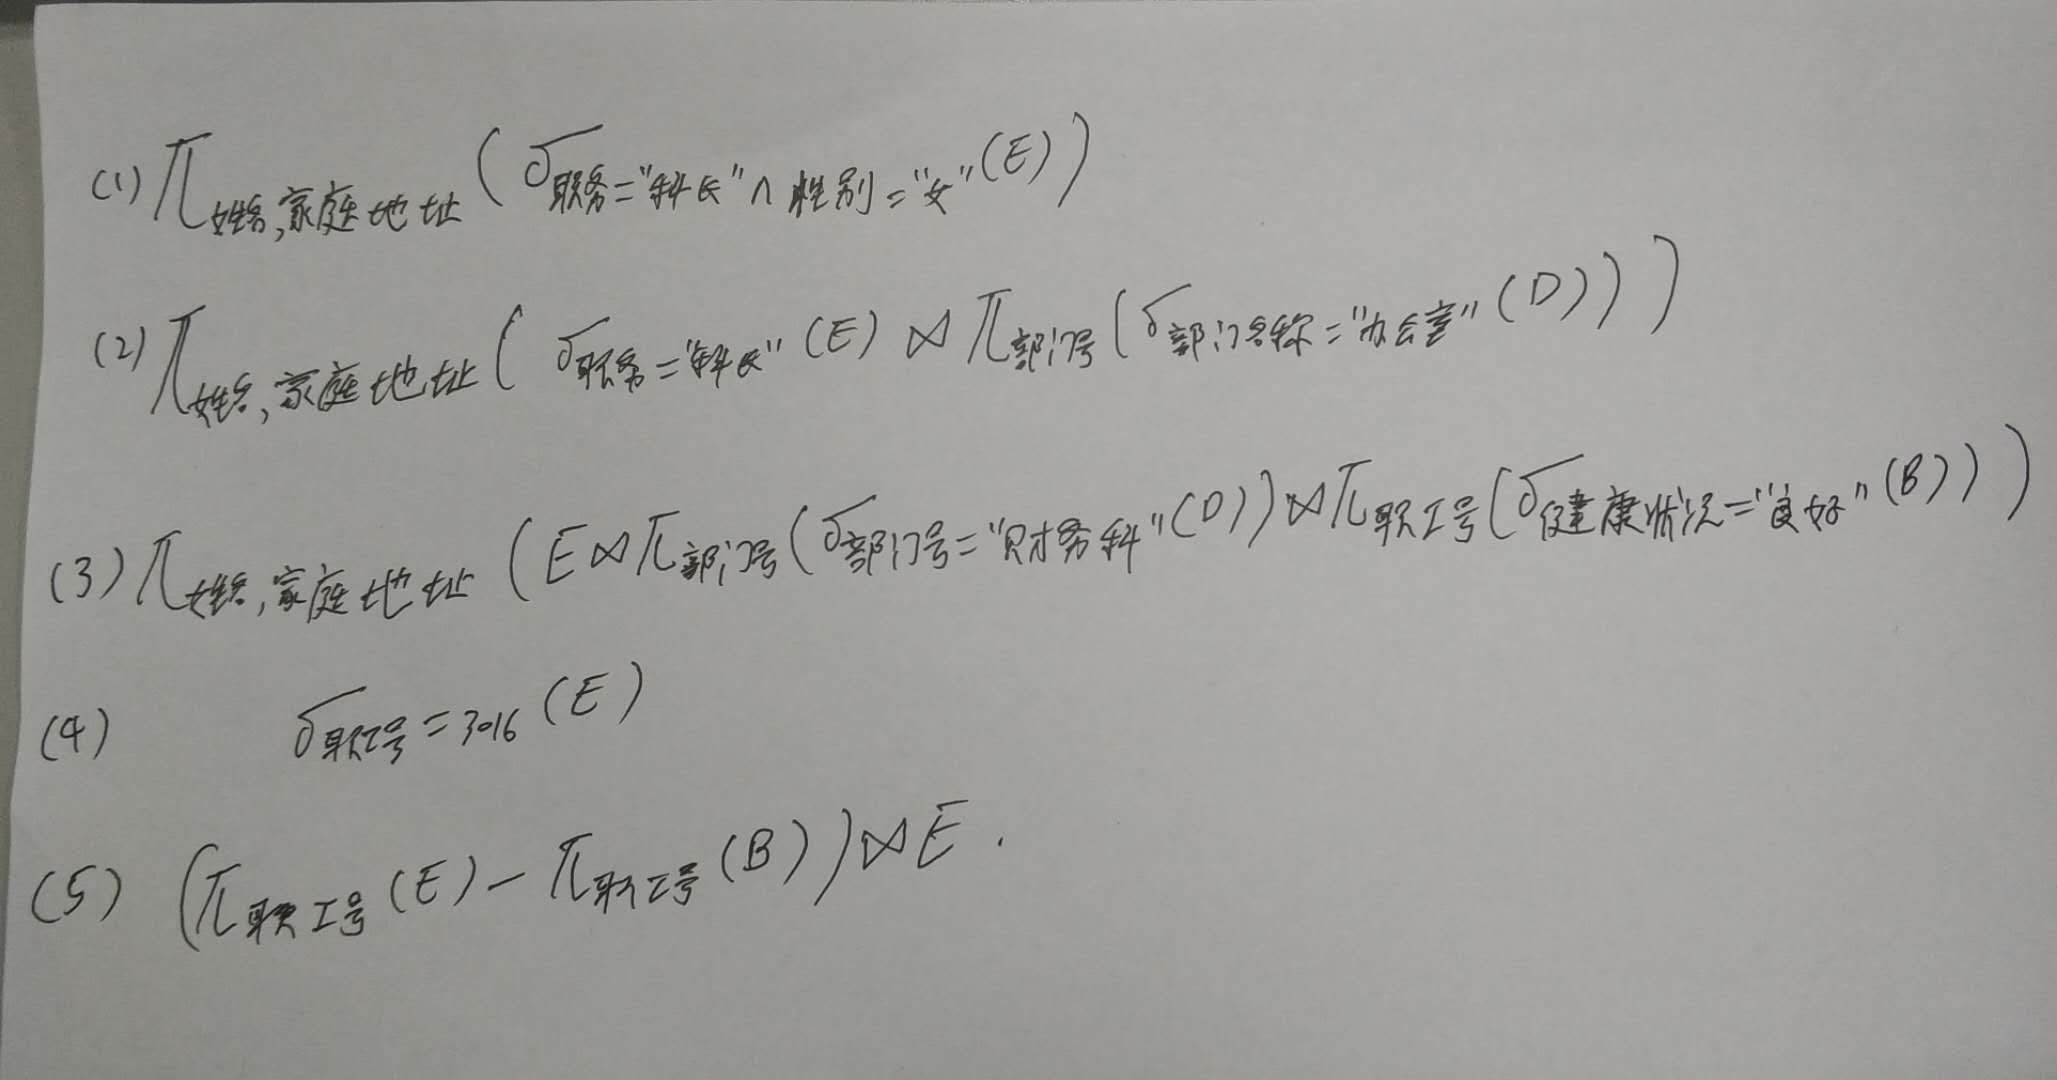 (1) π姓名,家庭地址(σ职务="科长"∧性别="女"(E))
(2) π姓名,家庭地址(σ职务="科长"(E)⋈π部门号(σ部门名称="办公室"(D)))
(3) π姓名,家庭地址(E⋈π部门号(σ部门号="财务科"(D))⋈π职工号(σ健康状况="良好"(B)))
(4) σ职工号=3016(E)
(5) (π职工号(E)-π职工号(B))⋈E.